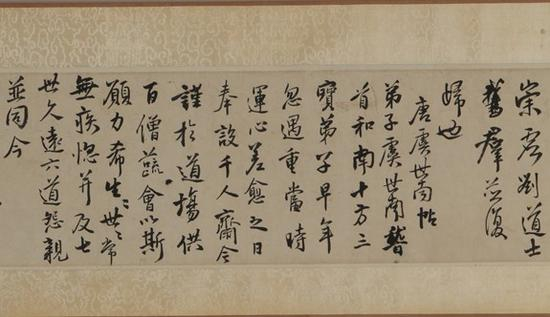 崇虛劉道士
鵞羣並復
歸也
唐虞世南帖
弟子虞世南稽
首和南十方三
寶弟子早年
忽遇重當時
運心差愈之日
奉設千人齋今
謹於道場供
百僧蔬會以斯
願力希生〻世〻常
無疾惱并及七
世久遠六道怨親
並同今